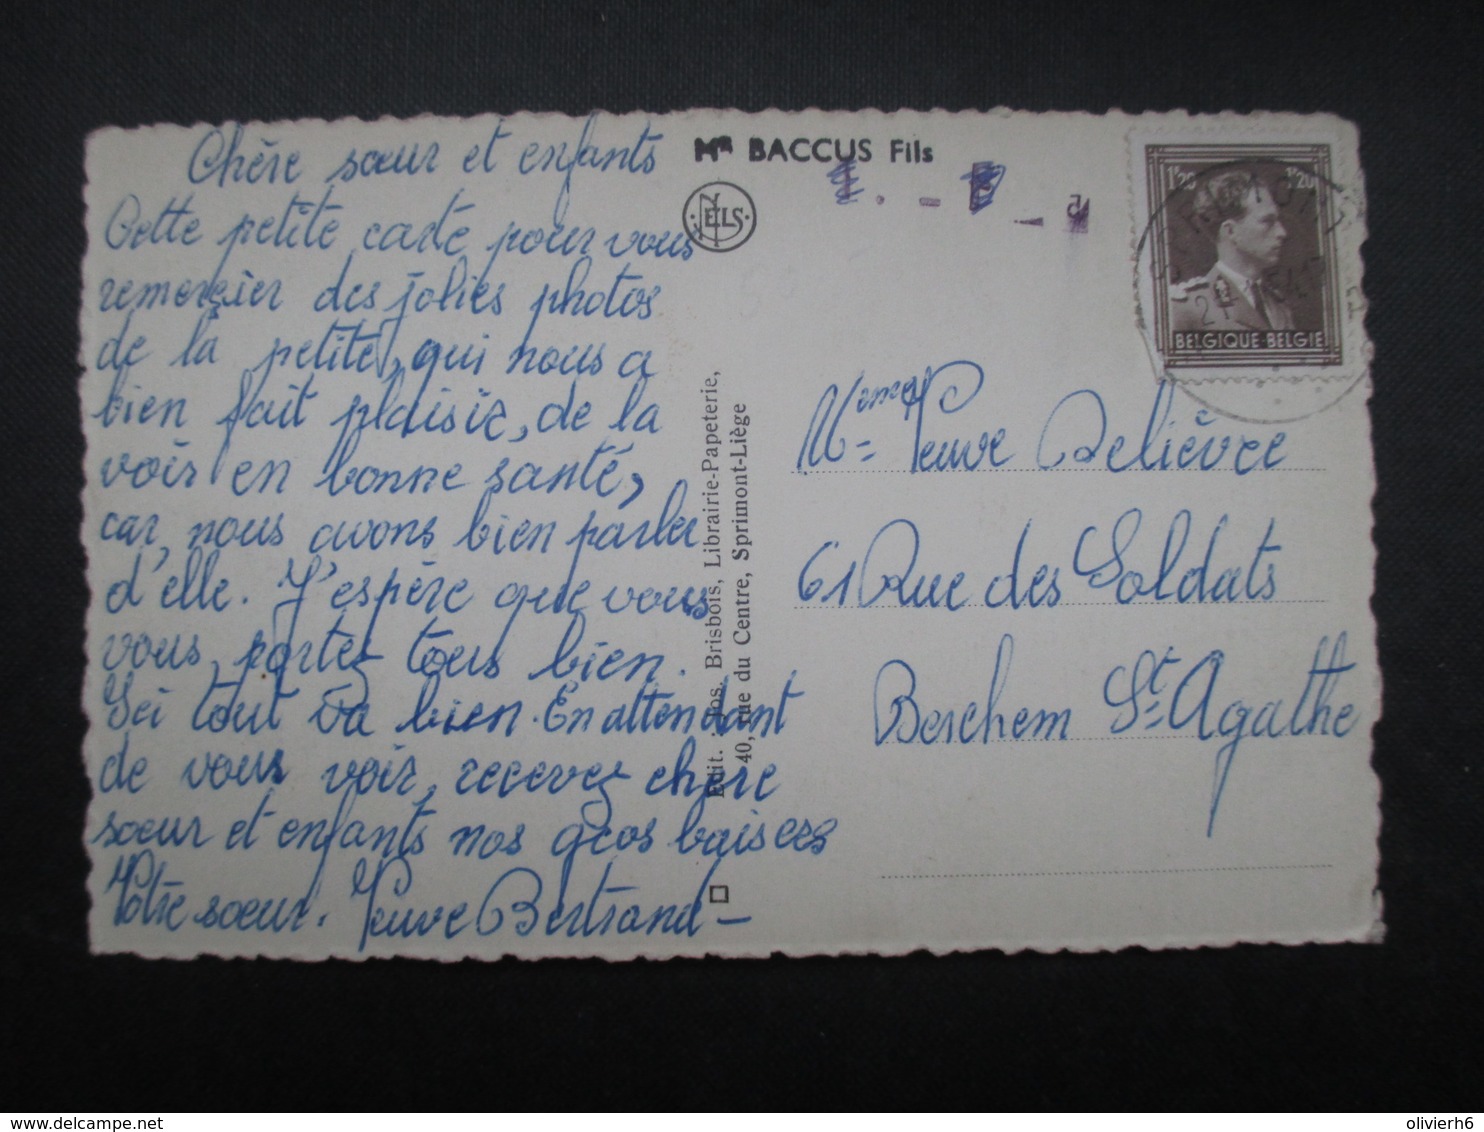 Chère sœur et enfants
Cette petite carte pour vous
remercier des jolies photos
de la petite, qui nous a
bien fait plaisir, de la
voir en bonne santé,
car nous avons bien parler
d'elle. J'espère que vous
vous portez tous bien.
Ici tout va bien. En attendant
de vous voir, recevez chère
sœur et enfants nos gros baisers
Votre sœur. Veuve Bertrand -
Mr BACCUS Fils
NELS
Edit. : Jos. Brisbois, Librairie-Papeterie,
40, rue du Centre, Sprimont-Liège
1'20 1'20
BELGIQUE-BELGIE
Mme Veuve Delièvre
61 Rue des Soldats
Berchem St Agathe
delcampe.net
olivierh6